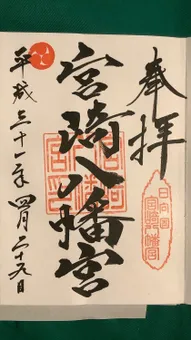 奉拝
日向国
宮崎八幡宮
宮崎八幡宮
平成三十一年四月二十九日